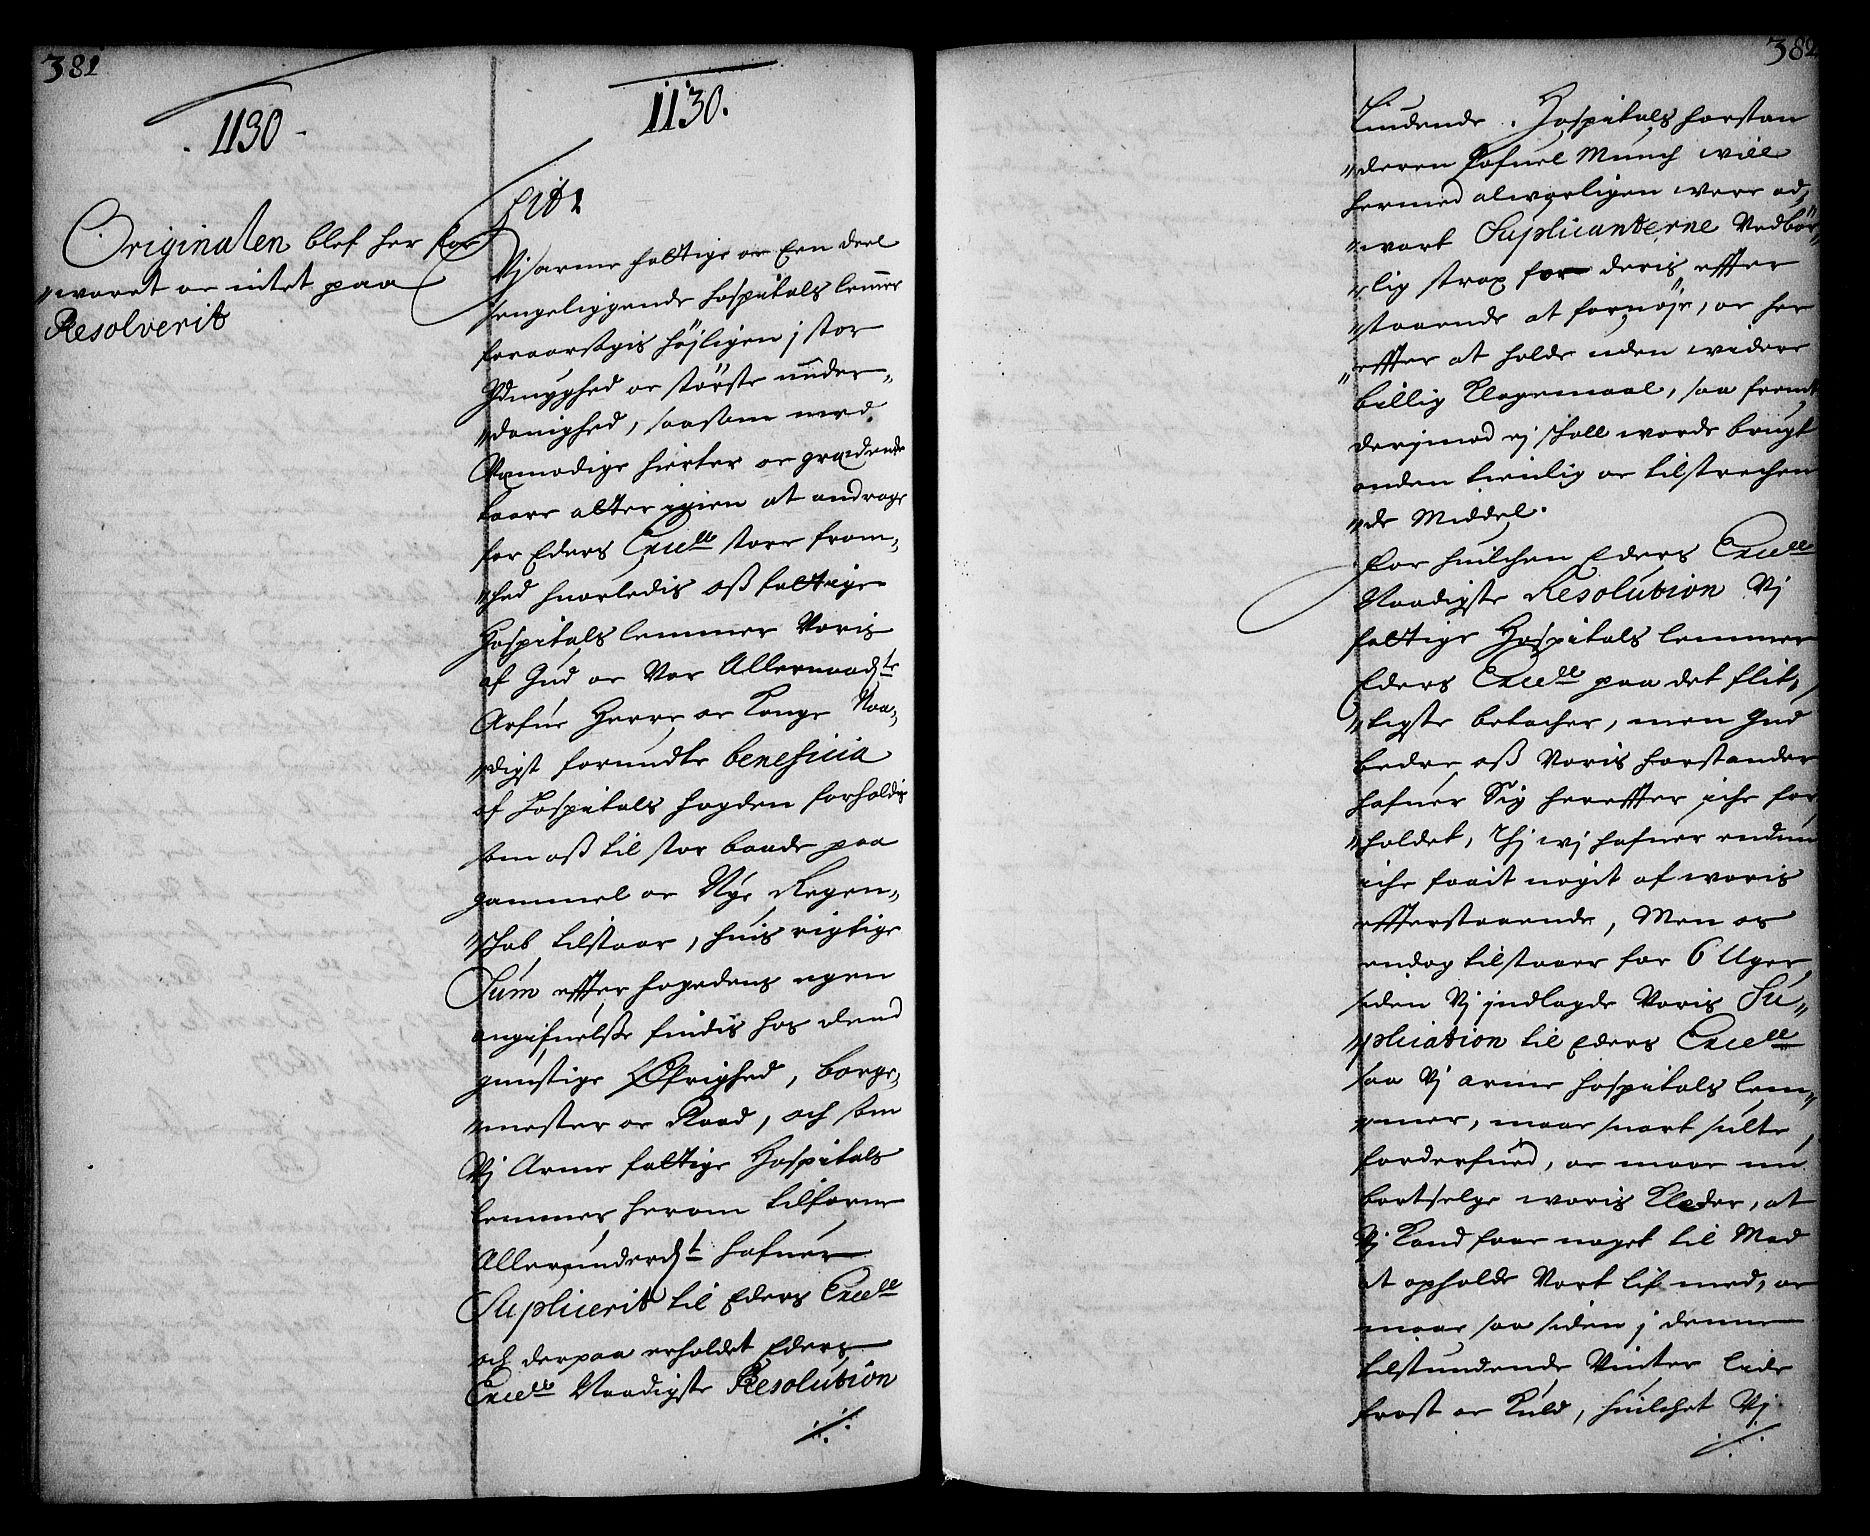 381
1130
Originalen blef her for
„waret oc intet paa
Resolverit
1130.
Tit:
Vj arme fattige oc Een deel
sengeliggende hospitals lemmer
foraarsagis højligen j stor
Ydmyghed oc største under„
„danighed, saasom med
Vemodige hierter oc grædende
taare atter igien at andrage
for Eders Excell: store from„
„hed huorledis oß fattige
Hospitals lemmer Voris
af Gud oc Vor Allernaadste
Arfue Herre oc Konge Naa„
„digst forundte beneficia
af hospitals fogden forholdis
som oß til stor baade paa
gammel oc Nye Regen„
„schab tilstaar, huis rigtige
Sum effter fogedens egen
angifuelse findis hos dend
gunstige Øfrighed, borge„
„mester oc Raad, och som
Vj Arme fattige Hospitals
lemmer herom tilforne
Allerunderdst hafuer
Supplicerit til Eders Excell
och derpaa erholdet Eders
Excell Naadigste Resolution
382
Liudende. Hospitals forstan
„deren Pofuel Munch wille
hermed alworligen were ad„
„wart Suplicanterne Vedbør„
„lig strax for deris effter
„staaende at fornøje, oc her
„effter at holde uden widere
billig Klagemaal, saa fremt
derjmod ej skall worde brugt
anden tienlig oc tilstrechen
„de Middel.
For huilchen Eders Excell
Naadigste Resolution Vj
fattige Hospitals lemmer
Eders Excell paa det flit„
„tigste betacher, men Gud
bedre oß Voris forstander
hafuer Sig hereffter iche for
„holdet, Thj wj hafuer endnu
iche faait noget af woris
effterstaaende, Men os
endog tilstaaer for 6 Uger
siden Vj jndlagde Voris Su„
„plication til Eders Excell
saa Vj arme hospitals lem„
„mer, maae snart sulte
forderfued, oc maae nu
bortselge woris Kleder, at
Vj Kand faae noget til Mad
at opholde Vort lif med, oc
maae saa siden j denne
tilstundende Vinter lide
frost oc Kuld, huilchet Vj